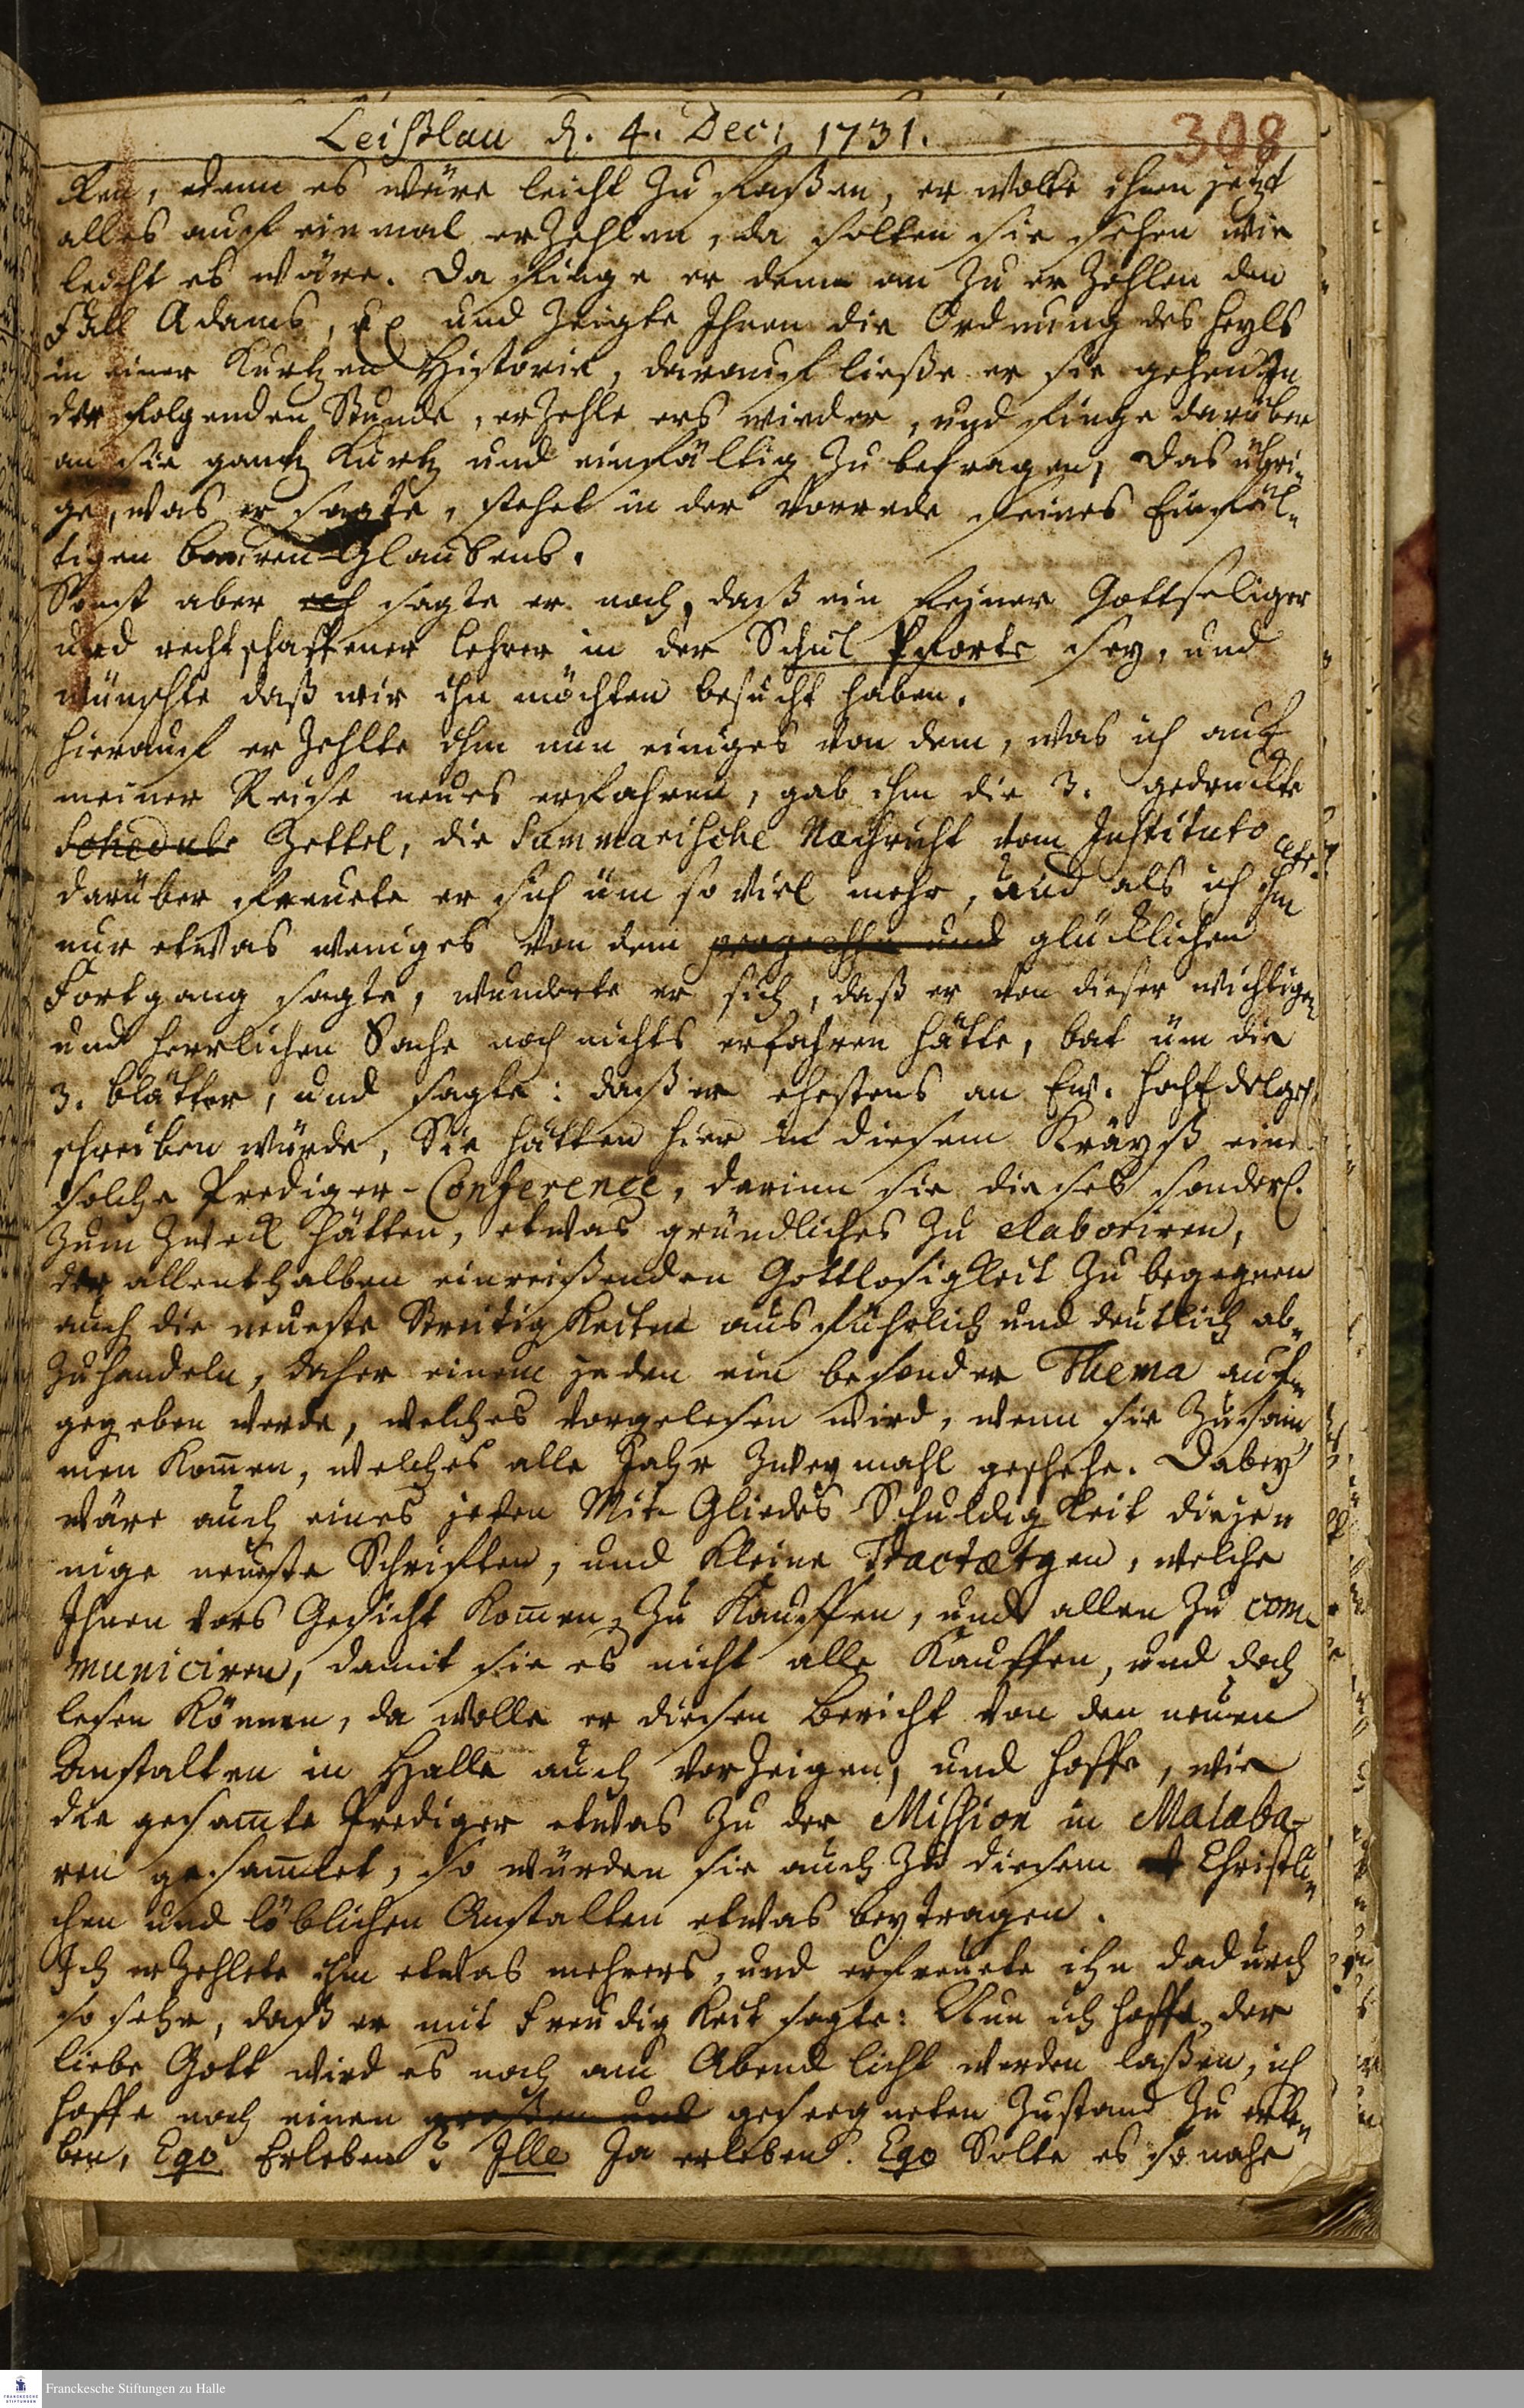 Leißlau d. 4. Dec: 1731.
308
ken, denn es wäre leicht zu faßen, er wolte ihnen jetzt
alles auf einmal erzehlen, da solten sie sehen wie
leicht es wäre. Da finge er denn an zu erzehlen den
Fall Adams, und zeigte Ihnen die Ordnung des Heyls
in einer kurtzen Historie, darauf ließe er sie gehen. In
der folgenden Stunde, erzehle ers wieder, und finge darüber
an sie gantz kurtz und einfältig zu befragen, Das übri-
ge, was er sagte, stehet in der Vorrede seines Einfäl-
tigen Bauren-Glaubens.
Sonst aber sagte er noch, daß ein feiner Gottseliger
und rechtschaffener Lehrer in der Schul Pforte sey, und
wünschte daß wir ihn möchten besucht haben.
Hierauf erzehlte ihm nun einiges von dem, was ich auf
meiner Reise neues erfahren, gab ihm die 3. gedruckte
Schedule Zettel, die Summarische Nachricht vom Instituto
darüber freuete er sich üm so viel mehr, und als ich ihm
nur etwas weniges von dem und glücklichen
Fortgang sagte, wunderte er sich, daß er von dieser wichtigen
und herrlichen Sache noch nichts erfahren hätte, bat üm die
3. Blätter, und sagte: daß er ehestens an Ew. HochEdelgeb.
schreiben würde, Sie hätten hier in diesem Kräyß eine
solche Prediger-Conference, darinn sie dieses sonderl.
zum Zweck hätten, etwas gründliches zu elaboriren,
der allenthalben einreißenden Gottlosigkeit zu begegnen
auch die neueste Streitigkeiten ausführlich und deutlich ab-
zuhandeln, daher einem jeden ein besonder Thema auf-
gegeben werde, welches vorgelesen wird, wenn sie zusam-
men kom̄en, welches alle Jahr zweymahl geschehe. Dabey
wäre auch eines jeden Mit-Gliedes Schuldigkeit diejen
nige neueste Schrifften, und kleine Tractætgen, welche
Ihnen vors Gesicht kom̄en, zu kauffen, und allen zu com-
municiren, damit sie es nicht alle kauffen, und doch
lesen können, da wolle er diesen Bericht von den neuen
Anstalten in Halle auch vorzeigen, und hoffe, wie
die gesam̄te Prediger etwas zu der Mission in Malaba-
ren gesam̄let, so würden sie auch zu diesem Christli-
chen und löblichen Anstalten etwas beytragen.
Ich erzehlete ihm etwas mehrers, und erfreuete ihn dadurch
so sehr, daß er mit Freudigkeit sagte: Nun ich hoffe, der
liebe Gott wird es noch am Abend licht werden laßen, ich
hoffe noch einen großen und geseegneten Zustand zu erle-
ben, Ego Erleben? Ille Ja erleben. Ego Solte es so nahe
Franckesche Stiftungen zu Halle